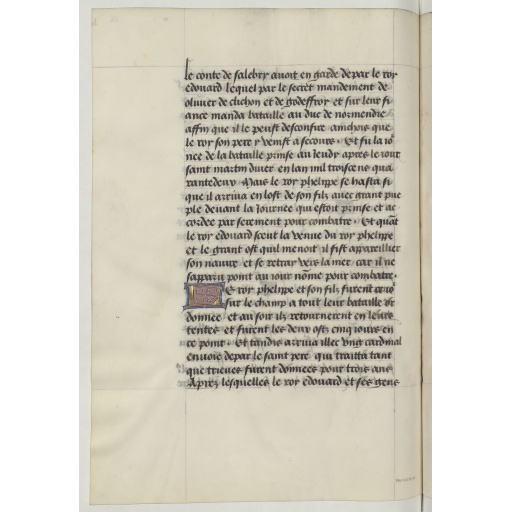 le conte de salebry auoit en garde de par le roy
edouard lequel par le secret mandement de
oliuier de clichon et de godeffroy et sur leur fi
ance manda bataille au duc de normendie
affin que il le peust desconfire ainchois que
le roy son pere y venist a secours. Et fu la io
nee de la bataille prinse au ieudy apres le iour
saint martin diuer en lan mil troiscens qua
rantedeux Mais le roy phelippe se hasta si
que il arriua en lost de son filz auec grant peu
ple deuant la iournee qui estoit prinse et ac
cordee par serement pour combatre. Et quant
le roy edouard sceut la venue du roy phelippe
et le grant ost quil menoit il fist appareillier
son nauire et se retray vers la mer car il ne
sapparu point au iour nome pour combatre.
Le roy phelippe et son filz furent
sur le champ a tout leur bataille
donnee et au soir ilz retournerent en leurs
tentes et furent les deux ostz cinq iours en
ce point. Et tandis arriua illec vng cardinal
enuoie de par le saint pere qui traitta tant
que trieues furent donnees pour trois ans
Aprez lesquelles le roy edouard et ses gens